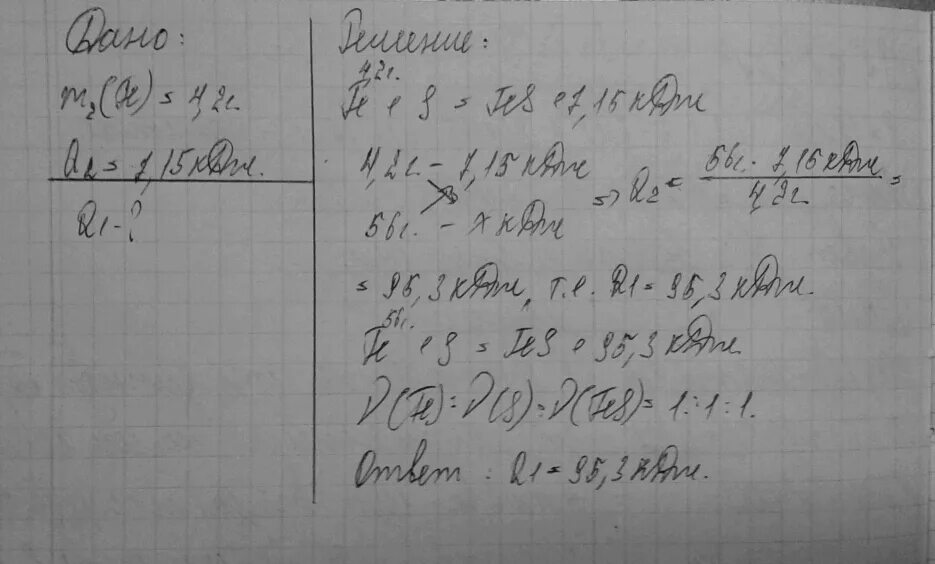 Дано:
m₂(Fe) = 4,2г.
Q2 = 7,15 кДж.
Q1 - ?
Решение:
4,2г.
Fe + S = FeS + 7,15 кДж
4,2г. – 7,15 кДж
56г. – x кДж
=> Q2 = 56г. · 7,15 кДж / 4,2г. =
= 95,3 кДж, т.е. Q1 = 95,3 кДж.
56г.
Fe + S = FeS + 95,3 кДж
ν(Fe) : ν(S) : ν(FeS) = 1:1:1.
Ответ: Q1 = 95,3 кДж.